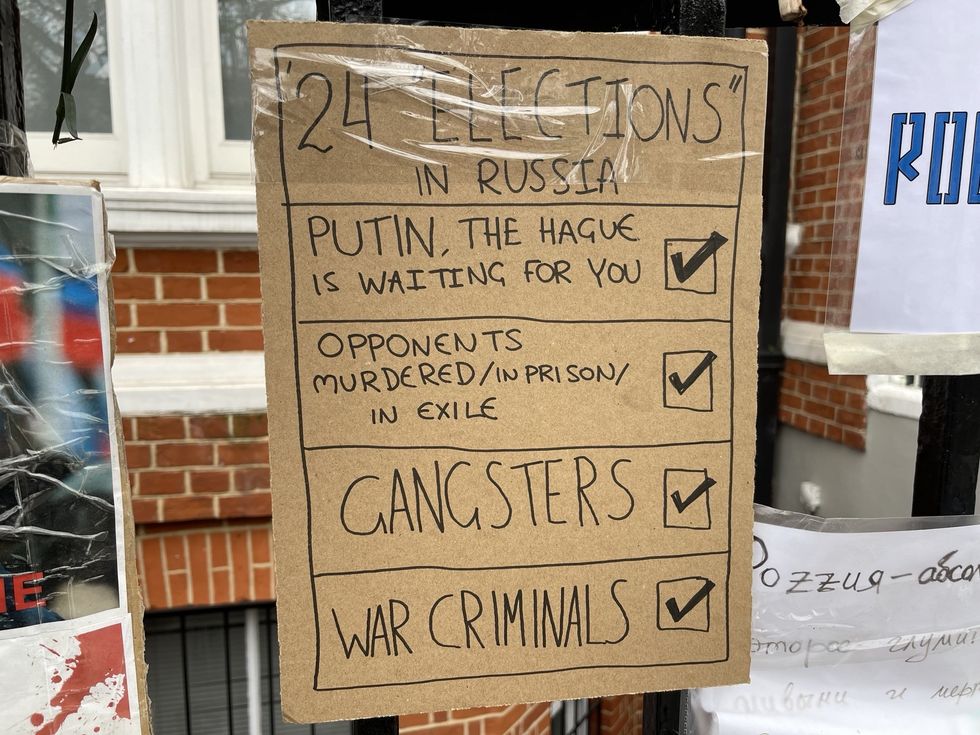 '24 "ELECTIONS"
IN RUSSIA
PUTIN, THE HAGUE
IS WAITING FOR YOU
OPPONENTS
MURDERED/IN PRISON/
IN EXILE
GANGSTERS
WAR CRIMINALS
Роzzия - абсо
глуми
и мер